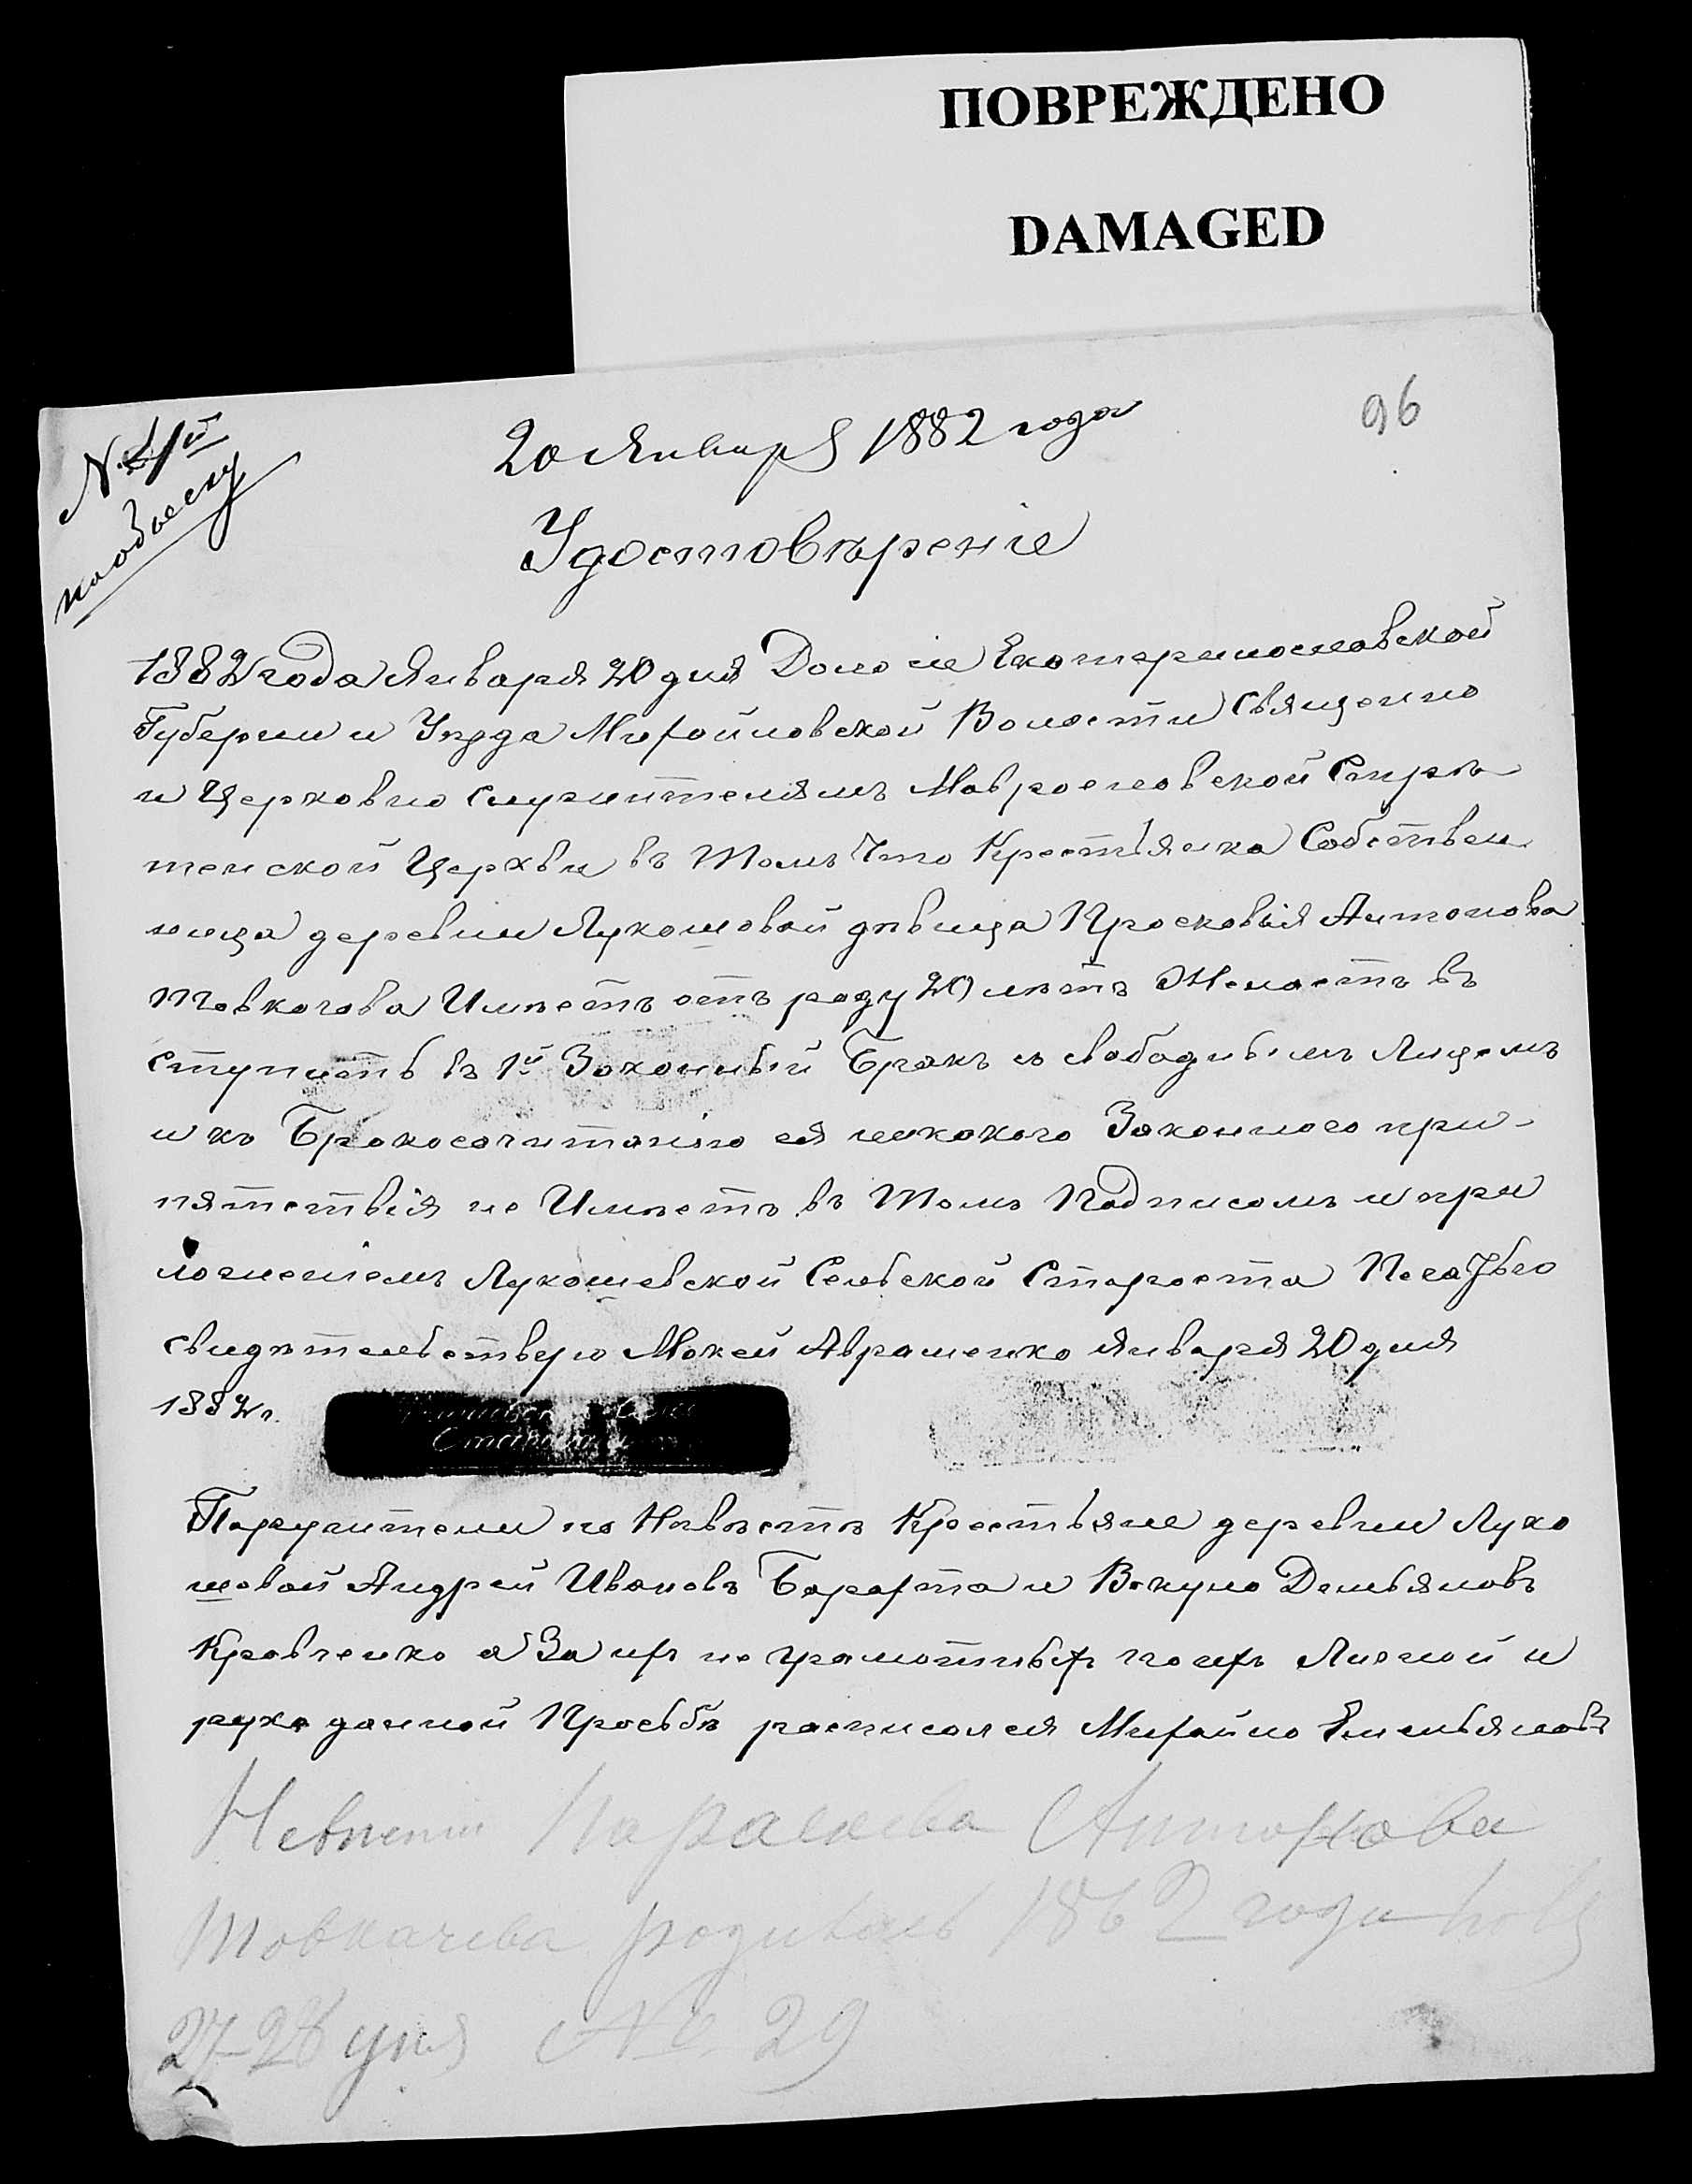 ПОВРЕЖДЕНО
DAMAGED
96
N. 4й
к обыску
20 Января 1882 года
Удостовѣреніе
1882 года Января 20 дня Дано сіе Екатеринославской
Губернии и Уѣзда Михайловской Волости Священно
и Церковно служителямъ Маврослов​ской Стрѣ
тенской Церкви въ Томъ Что Крестьянка Собствен
ница деревни Лукошовой дѣвица Просковья Антонова
Товкачова Имѣетъ отъ роду 20 лѣтъ Желаетъ въ
ступить въ 1й Законный Бракъ с свободнымъ Лицемъ
и къ Бракосочитанію ея некакого Законного при-
пятствія не Имѣетъ въ Томъ Подписомъ и при
ложениемъ Лукошевской Сельской Староста Печатью
свидѣтельствую Мокей Аврашенко Января 20 дня
1882 г.
Поручители по Невѣстѣ Крестьяне деревни Луко
шовой Андрей Ивановъ Бархота и Вакуло Демьяновъ
Кравченко а За ихъ не грамотныхъ по ихъ Личной и
рукоданной Просьбѣ росписался Михайло Емельяновъ
Невѣста Параскева Антонова
Товкачева родилась 1862 года
27-28 дня № 29